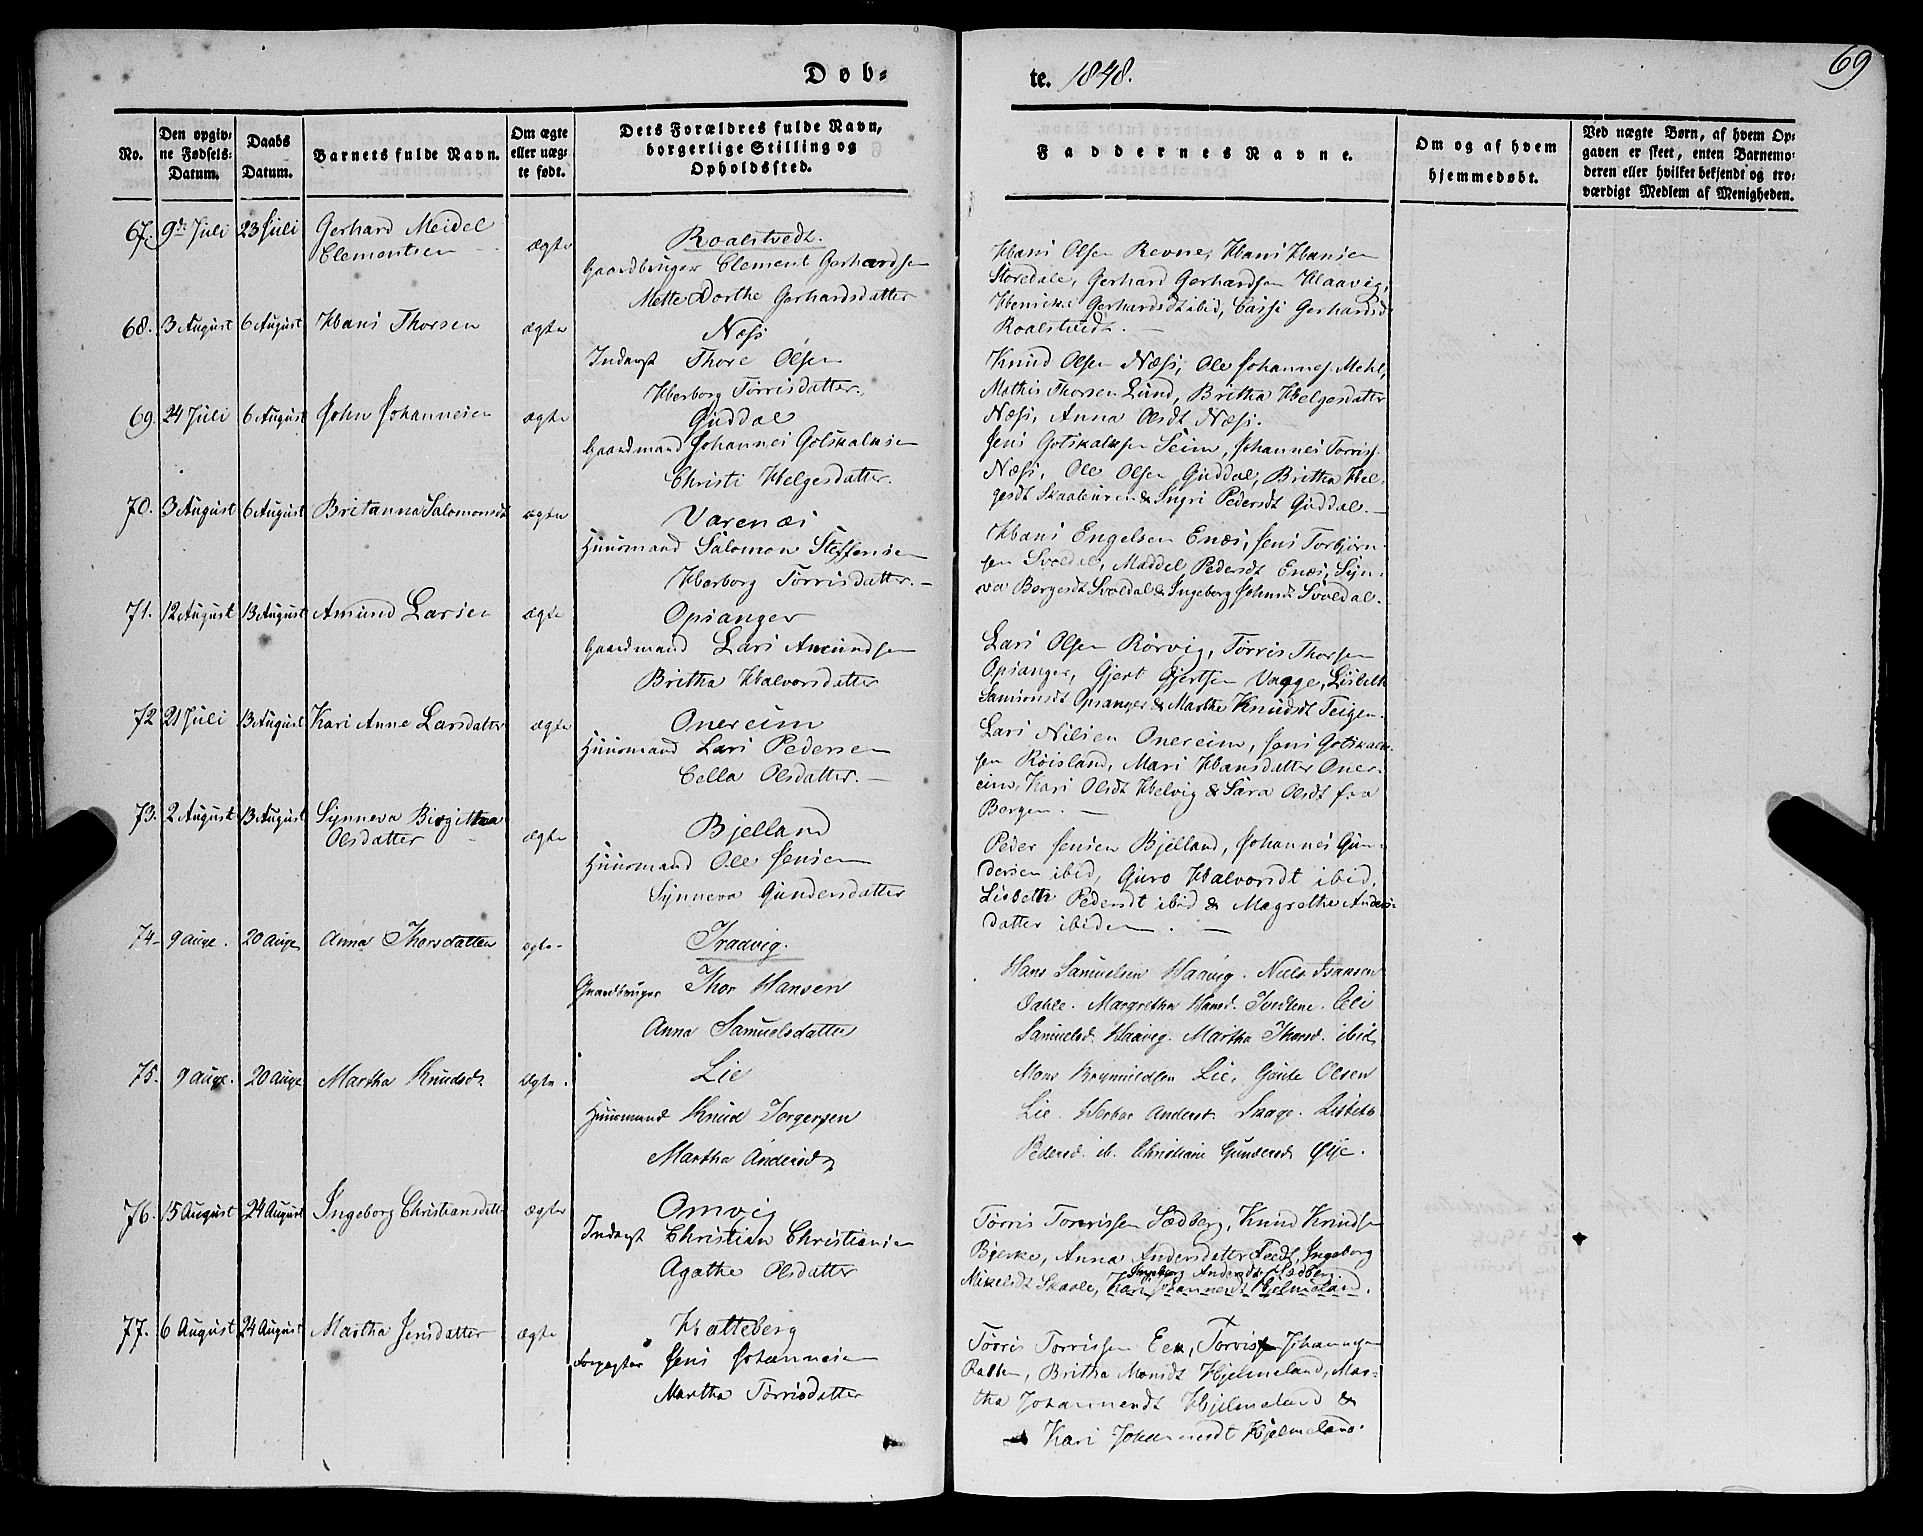 69
Døb-
te. 1848.
No.
Den opgiv-
ne Fødsels-
Datum.
Daabs
Datum.
Barnets fulde Navn.
Om ægte
eller uæg-
te født.
Dets Forældres fulde Navn,
borgerlige Stilling og
Opholdssted.
Faddernes Navne.
Om og af hvem
hjemmedøbt.
Ved uægte Børn, af hvem Op-
gaven er skeet, enten Barnemo-
deren eller hvilket bekjendt og tro-
værdigt Medlem af Menigheden.
67. 9de Juli 23 Juli Gerhard Meidel
Clementsen
ægte
Roalstvedt.
Gaardbruger Clement Gerhardsen
Mette Dorthe Gerhardsdatter
Hans Olsen Revne, Hans Hansen
Storedale, Gerhard Gerhardsen Haavig,
Henicke Gerhardsdt ibid, Gerhardsdt
Roalstvedt. —
68. 3 August 6 August Hans Thorsen ægte
Næss
Inderst Thore Olsen
Herborg Torrisdatter.
Knud Olsen Næss, Ole Johannes. Mehl,
Mathis Thorsen Lund, Britha Helgesdatter
Næss, Anna Olsdt Næss.
69. 24 Juli 6 August John Johannesen ægte
Guddal
Gaardmand Johannes Gotskalksen
Christi Helgesdatter.
Jens Gotskalksen Seim, Johannes Torriss.
Næss, Ole Olsen Guddal, Britha Hel-
gesdt Skaaluren & Ingri Pedersdt Guddal. —
70. 3 August 6 August Britanna Salomonsdt ægte
Varenæs
Huusmand Salomon Steffensen
Herborg Torrisdatter. —
Hans Engelsen Enæs, Jens Torbjørn-
sen Svoldal, Maddel Pedersdt Enæs, Syn-
va Børgesdt Svoldal & Ingeborg Johnsdt Svoldal. —
71. 12 August 13 August Amund Larsen ægte
Opsanger
Gaardmand Lars Amundsen
Britha Halvorsdatter
Lars Olsen Rørvig, Torris Thorsen
Opsanger, Gjert Gjertsen Vagge, Lisbeth
Samsonsdt Opsanger & Marthe Knudsdt Teigen.
72 21 Juli 13 August Kari Anne Larsdatter ægte
Onereim
Huusmand Lars Pedersen
Cella Olsdatter. —
Lars Nilsen Onereim, Jens Gotskalk-
sen Røisland, Mari Hansdatter Oner-
eim, Kari Olsdt Helvig & Sara Olsdt fra
Bergen. —
73. 2 August 13 August Synneva Birgitha
Olsdatter
ægte
Bjelland
Huusmand Ole Jensen
Synneva Gundersdatter
Peder Jensen Bjelland, Johannes Gun-
dersen ibid, Guro Halvorsdt ibid,
Lisbeth Pedersdt ibid & Magrethe Anders-
datter ibidem. —
74 9 Aug. 20 Aug. Anna Thorsdatter ægte
Traavig.
Gaardbruger Thor Hansen
Anna Samuelsdatter
Hans Samuelsen Haavig. Niels Isaksen
Dahle. Margretha Hansd. Tvedtene. Eli
Samuelsd. Haavig. Martha Thorsd. ibid.
75. 9 Aug. 20 Aug. Martha Knudsdt ægte.
Lie
Huusmand Knud Torgersen
Martha Andersdt
Mons Brynnildsen Lie, Gaute Olsen
Lie. Herbor Andersd. Skage. Lisbeth
Pedersd. ib. Christiane Gundersd. Øste.
76. 15 August 24 August Ingeborg Christiansdatt ægte
Omvig
Inderst Christian Christiansen
Agathe Olsdatter
Torris Torrissen Sædberg, Knud Knudsen
Bjerke, Anna Andersdatter Tvedt, Ingeborg
Ingeborg Andersdt Sædberg
Mikelsdt Skaale, Kari Johannesdt Hjelmeland.
77. 6 August 24 August Martha Jensdatter ægte
Hatteberg
Forpagter Jens Johannesen
Martha Torrisdatter
Torris Torrissen Een, Torris Johannesen
Britha Monsdt Hjelmeland, Mar-
tha Johannesdt Hjelmeland &
Kari Johannesdt Hjelmeland.